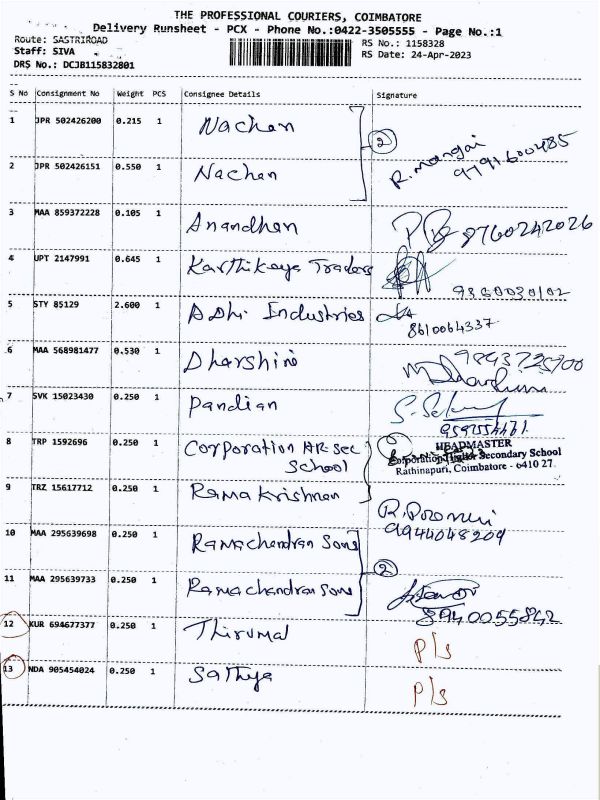 THE PROFESSIONAL COURIERS, COIMBATORE
Delivery Runsheet - PCX - Phone No.:0422-3505555 - Page No.:1
Route: SASTRIROAD
RS No.: 1158328
Staff: SIVA
RS Date: 24-Apr-2023
DRS No.: DCJB115832801
S No Consignment No Weight PCS Consignee Details Signature
1 JPR 502426200 0.215 1 Nachan
2
2 JPR 502426151 0.550 1 Nachan R. mangai
9791600485
3 MAA 859372228 0.105 1 Anandhan 8760242026
4 UPT 2147991 0.645 1 Karthikeya Traders
9360030102
5 STY 85129 2.600 1 ADhi Industries
8610064337
6 MAA 568981477 0.530 1 Dharshini
7 SVK 15023430 0.250 1 Pandian
8 TRP 1592696 0.250 1 Corporation HR Sec
School
HEADMASTER
Corporation Higher Secondary School
Rathinapuri, Coimbatore - 641027
9 TRZ 15617712 0.250 1 Rama Krishnan
9944048204
10 MAA 295639698 0.250 1 Ramachandran Sons
2
11 MAA 295639733 0.250 1 Ramachandran Sons
8940055842
12 KUR 694677377 0.250 1 Thirumal P/s
13 NDA 905454024 0.250 1 Sathya P/s